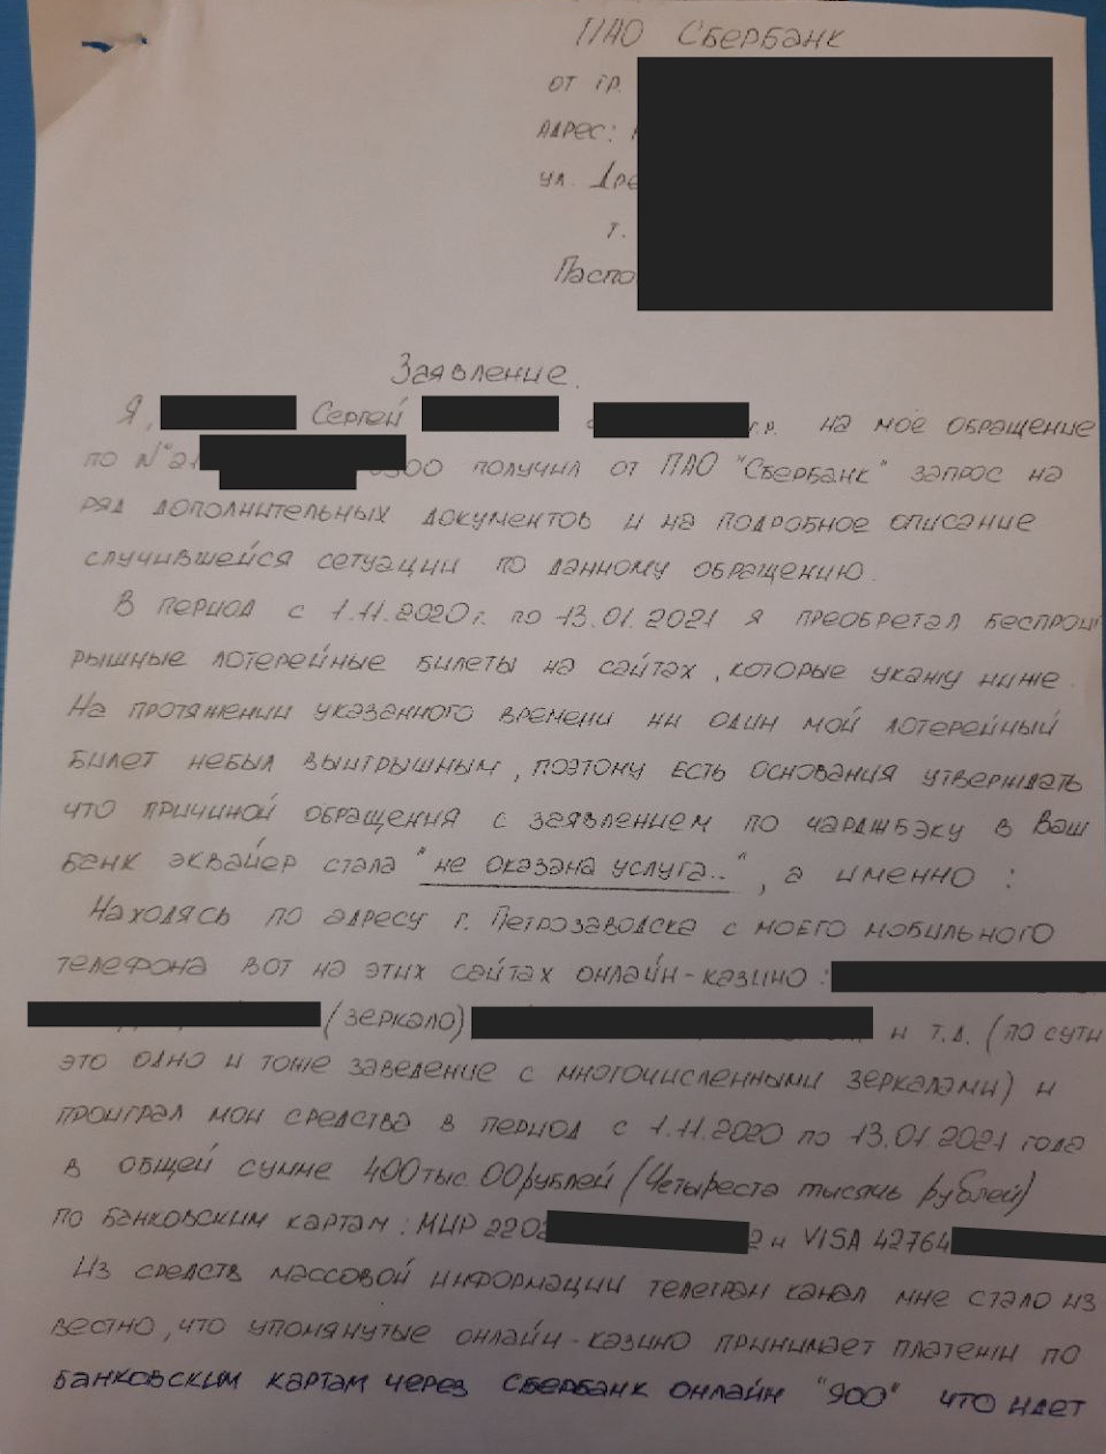 ПАО Сбербанк
от гр.
Адрес:
ул. Дре
т.
Паспо
Заявление.
Я, Сергей г.р. на мое обращение
по №21 00 получил от ПАО "Сбербанк" запрос на
ряд дополнительных документов и на подробное описание
случившейся сетуации по данному обращению.
В период с 1.11.2020г. по 13.01.2021 я преобретал беспроиг
рышные лотерейные билеты на сайтах, которые укажу ниже.
На протяжении указанного времени ни один мой лотерейный
билет небыл выигрышным, поэтому есть основания утверждать
что причиной обращения с заявлением по чарджбэку в Ваш
банк эквайер стала "не оказана услуга..", а именно:
Находясь по адресу г. Петрозаводска с моего мобильного
телефона вот на этих сайтах онлайн-казино:
(зеркало) и т.д. (по сути
это одно и тоже заведение с многочисленными зеркалами) и
проиграл мои средства в период с 1.11.2020 по 13.01.2021 года
в общей сумме 400тыс. 00рублей (Четыреста тысячь рублей)
по банковским картам: МИР 2202 2 и VISA 42764
Из средств массовой информации телеграм канал мне стало из
вестно, что упомянутые онлайн-казино принимает платежи по
банковским картам через Сбербанк онлайн "900" что идет